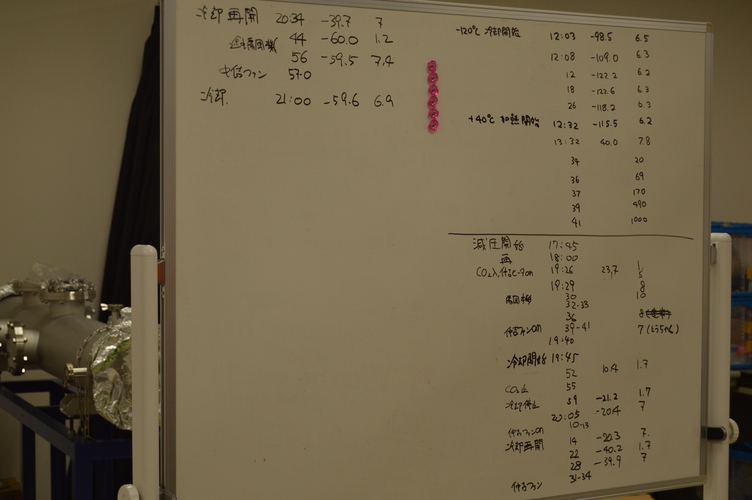 冷却再開 20:34 -39.7 7
44 -60.0 1.2
56 -59.5 7.4
ファン 57.0
冷却. 21:00 -59.6 6.9
-120℃ 冷却開始 12:03 -98.5 6.5
12:08 -109.0 6.3
12 -122.2 6.2
18 -122.6 6.3
26 -118.2 6.3
+40℃ 加熱開始 12:32 -115.5 6.2
13:32 40.0 7.8
34 20
36 69
37 170
39 490
41 1000
減圧開始 17:45
再 18:00
CO₂入 19:26 23.7
19:29 8
30 10
32-33
36
ファンON 39-41 7
19:40
冷却開始 19:45
52 10.4 1.7
CO₂止 55
冷却停止 59 -21.2 1.7
20:05 -20.4 7
ファンON 10-13
冷却再開 14 -20.3 7.
22 -40.2 1.7
28 -39.9 7
ファン 31-34